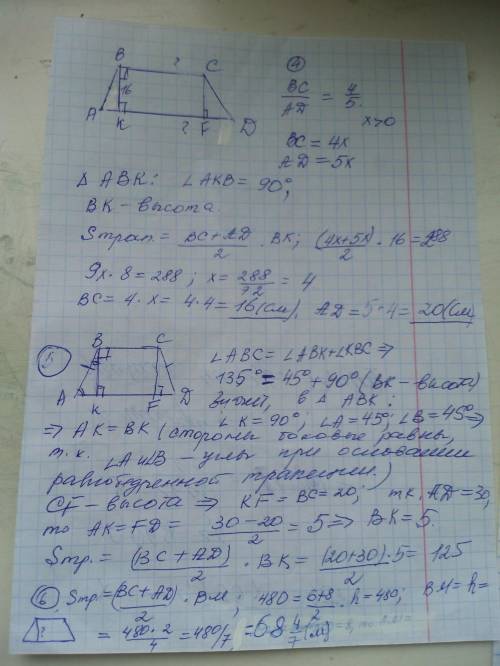 B ? C
16
A K ? F D
④
BC/AD = 4/5.
x>0
BC = 4x
AD = 5x
Δ ABK: ∠AKB = 90°;
BK – высота.
Sтрап. = (BC + AD)/2 · BK; (4x+5x)/2 · 16 = 288
9x · 8 = 288; x = 288/72 = 4
BC = 4 · x = 4·4 = 16 (см). AD = 5·4 = 20 (см)
⑤ B C
A K F D
∠ABC = ∠ABK + ∠KBC ⇒
135° = 45° + 90° (BK – высота)
значит, в Δ ABK:
∠K = 90°; ∠A = 45°; ∠B = 45° ⇒
⇒ AK = BK (стороны боковые равны,
т.к. ∠A и ∠B – углы при основании
равнобедренной трапеции.)
CF – высота ⇒ KF = BC = 20; т.к. AD = 30,
то AK = FD = (30 – 20)/2 = 5 ⇒ BK = 5.
Sтр. = (BC + AD)/2 · BK = (20+30)/2 · 5 = 125
⑥ Sтр. = (BC + AD)/2 · BM; 480 = (6+8)/2 · h = 480; BM = h =
?
= 480·2/4 = 480/7 = 68 4/7 (м)